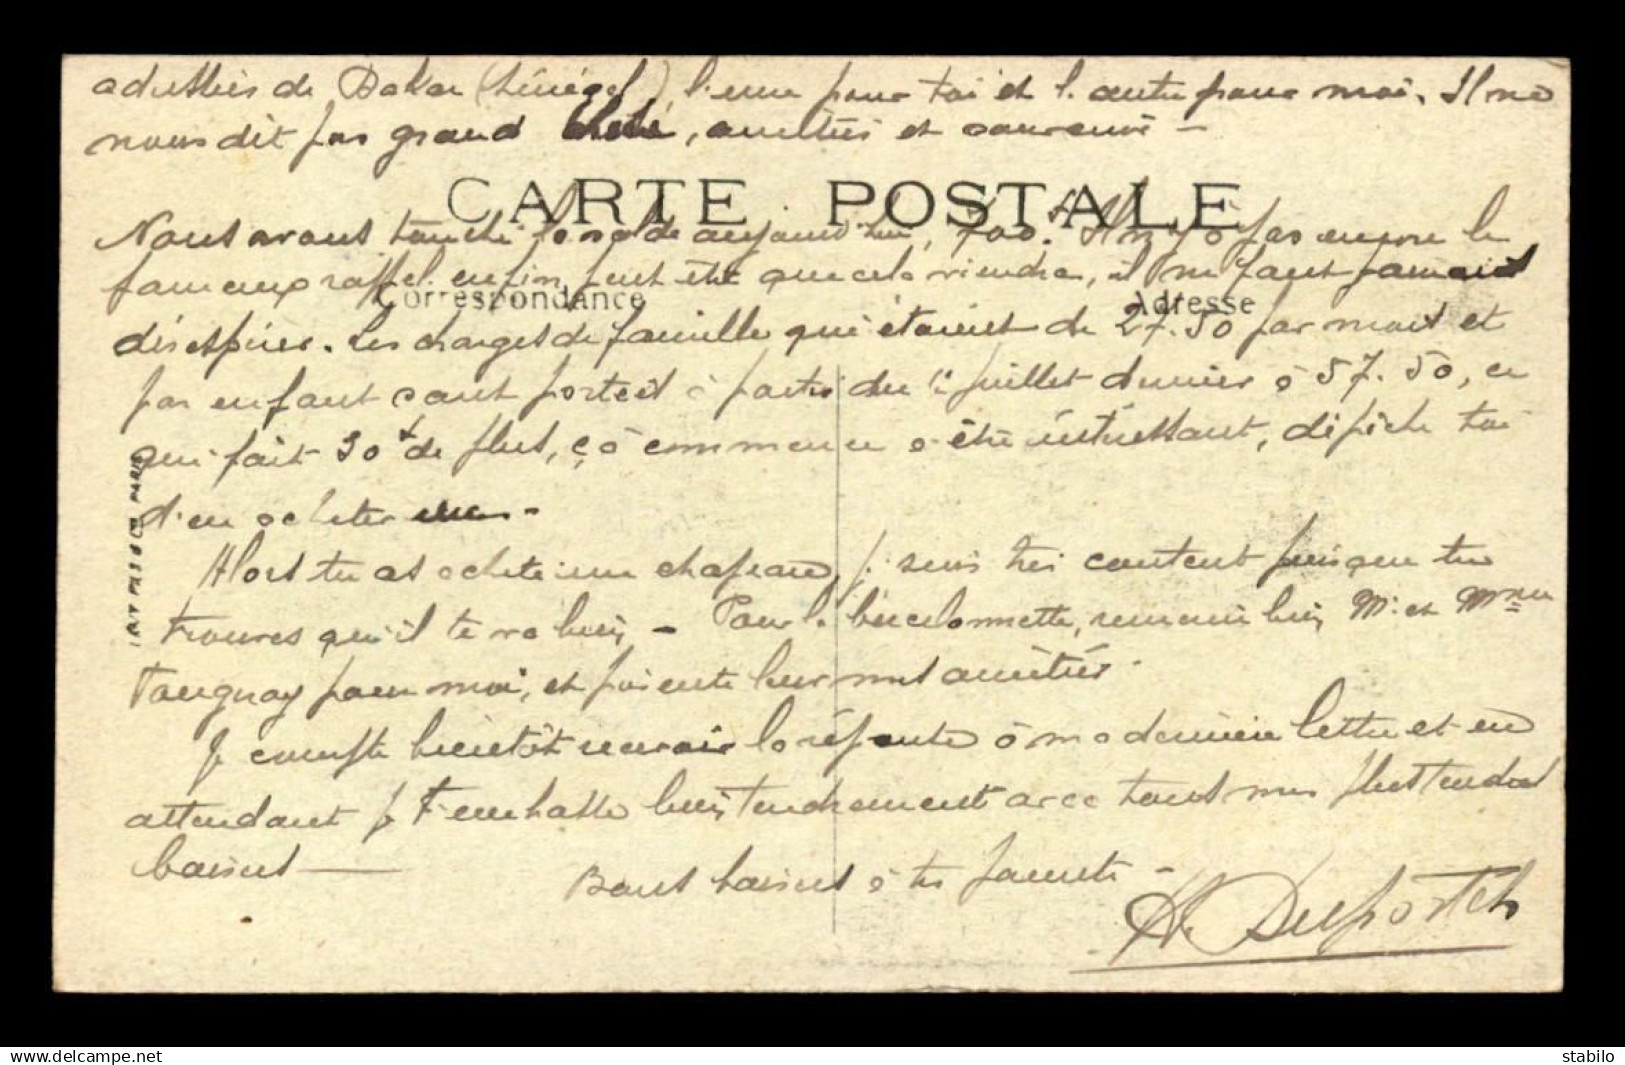 adressées de Dakar (Sénégal), l'une pour toi et l'autre pour moi. Il ne
nous dit pas grand amitiés et souvenir -
CARTE POSTALE
Nous avons touché la solde aujourd'hui, Il n'y a pas encore le
fameux rappel. enfin peut être que cela viendra, il ne faut jamais
Correspondance Adresse
désespérer. Les charges de famille qui étaient de 27.50 par mois et
par enfant sont portées à partir du 1er juillet dernier à 57.50, ce
qui fait 30f de plus, çà commence à être intéressant, dépêche toi
d'en acheter une -
Alors tu as acheté un chapeau, je suis très content puisque tu
trouves qu'il te va bien - Pour la barcelonnette, remercie bien Mr et Mme
Tanguay pour moi, et présente leur mes amitiés.
Je compte bientôt recevoir la réponse à ma dernière lettre et en
attendant je t'embrasse bien tendrement avec tous mes plus tendres
baisers
Bons baisers à tes parents -
A. Desportes